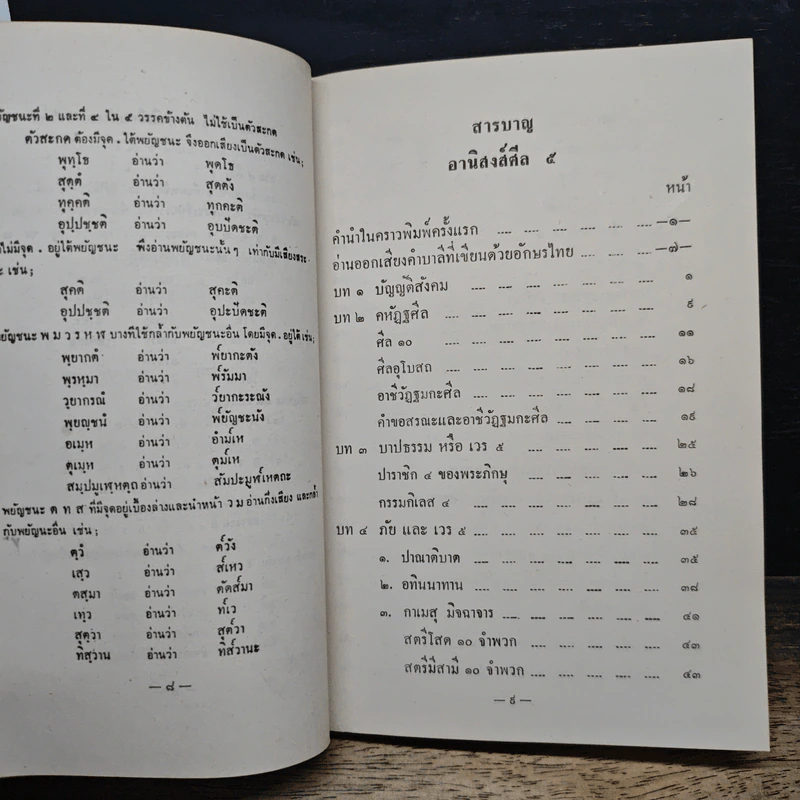 พยัญชนะที่ ๒ และที่ ๔ ใน ๕ วรรคข้างต้น ไม่ใช้เป็นตัวสะกด
ตัวสะกด ต้องมีจุด . ใต้พยัญชนะ จึงออกเสียงเป็นตัวสะกด เช่น;
พุทฺโธ อ่านว่า พุดโธ
สุตฺตํ อ่านว่า สุตตัง
ทุคฺคติ อ่านว่า ทุกคะติ
อุปฺปชฺชติ อ่านว่า อุบปัดชะติ
ไม่มีจุด . อยู่ใต้พยัญชนะ พึงอ่านพยัญชนะนั้นๆ เท่ากับมีเสียงสระ
ะ เช่น;
สุคติ อ่านว่า สุคะติ
อุปปชฺชติ อ่านว่า อุปะปัดชะติ
พยัญชนะ พ ม ว ร ห ฬ บางทีใช้กล้ำกับพยัญชนะอื่น โดยมีจุด . อยู่ใต้ เช่น;
พฺยากตํ อ่านว่า พ์ยากะตัง
พฺรหฺมา อ่านว่า พ์รัมมา
วฺยากรณํ อ่านว่า ว์ยากะระณัง
พฺยญฺชนํ อ่านว่า พ์ยัญชะนัง
อเมฺห อ่านว่า อำม์เห
ตุเมฺห อ่านว่า ตุมํเห
สมฺปมูเฬฺหตฺถ อ่านว่า สัมปะมูฬ์เหตถะ
พยัญชนะ ต ท ส ที่มีจุดอยู่เบื้องล่างและนำหน้า ว ม อ่านกึ่งเสียง และกล้ำ
กับพยัญนะอื่น เช่น;
ตฺวํ อ่านว่า ต์วัง
เสฺว อ่านว่า ส์เหว
ตสฺมา อ่านว่า ตัดส์มา
เทฺว อ่านว่า ท์เว
สุตฺวา อ่านว่า สุต์วา
ทิสฺวาน อ่านว่า ทิส์วานะ
— ๘ —
สารบาญ
อานิสงส์ศีล ๕
หน้า
คำนำในคราวพิมพ์ครั้งแรก .... .... .... .... —๑—
อ่านออกเสียงคำบาลีที่เขียนด้วยอักษรไทย .... .... —๗—
บท ๑ บัญญัติสังคม .... .... .... .... .... ๑
บท ๒ คหัฏฐศีล .... .... .... .... .... ๙
ศีล ๑๐ .... .... .... .... .... ๑๑
ศีลอุโบสถ .... .... .... .... .... ๑๖
อาชีวัฏฐมกะศีล .... .... .... .... .... ๑๘
คำขอสรณะและอาชีวัฏฐมกะศีล .... .... .... ๑๙
บท ๓ บาปธรรม หรือ เวร ๕ .... .... .... .... ๒๕
ปาราชิก ๔ ของพระภิกษุ .... .... .... .... ๒๖
กรรมกิเลส ๔ .... .... .... .... .... ๒๘
บท ๔ ภัย และ เวร ๕ .... .... .... .... .... ๓๕
๑. ปาณาติบาต .... .... .... .... .... ๓๕
๒. อทินนาทาน .... .... .... .... ๓๘
๓. กาเมสุ มิจฉาจาร .... .... .... .... ๔๑
สตรีโสด ๑๐ จำพวก .... .... .... .... ๔๓
สตรีมีสามี ๑๐ จำพวก .... .... .... .... ๔๓
— ๙ —